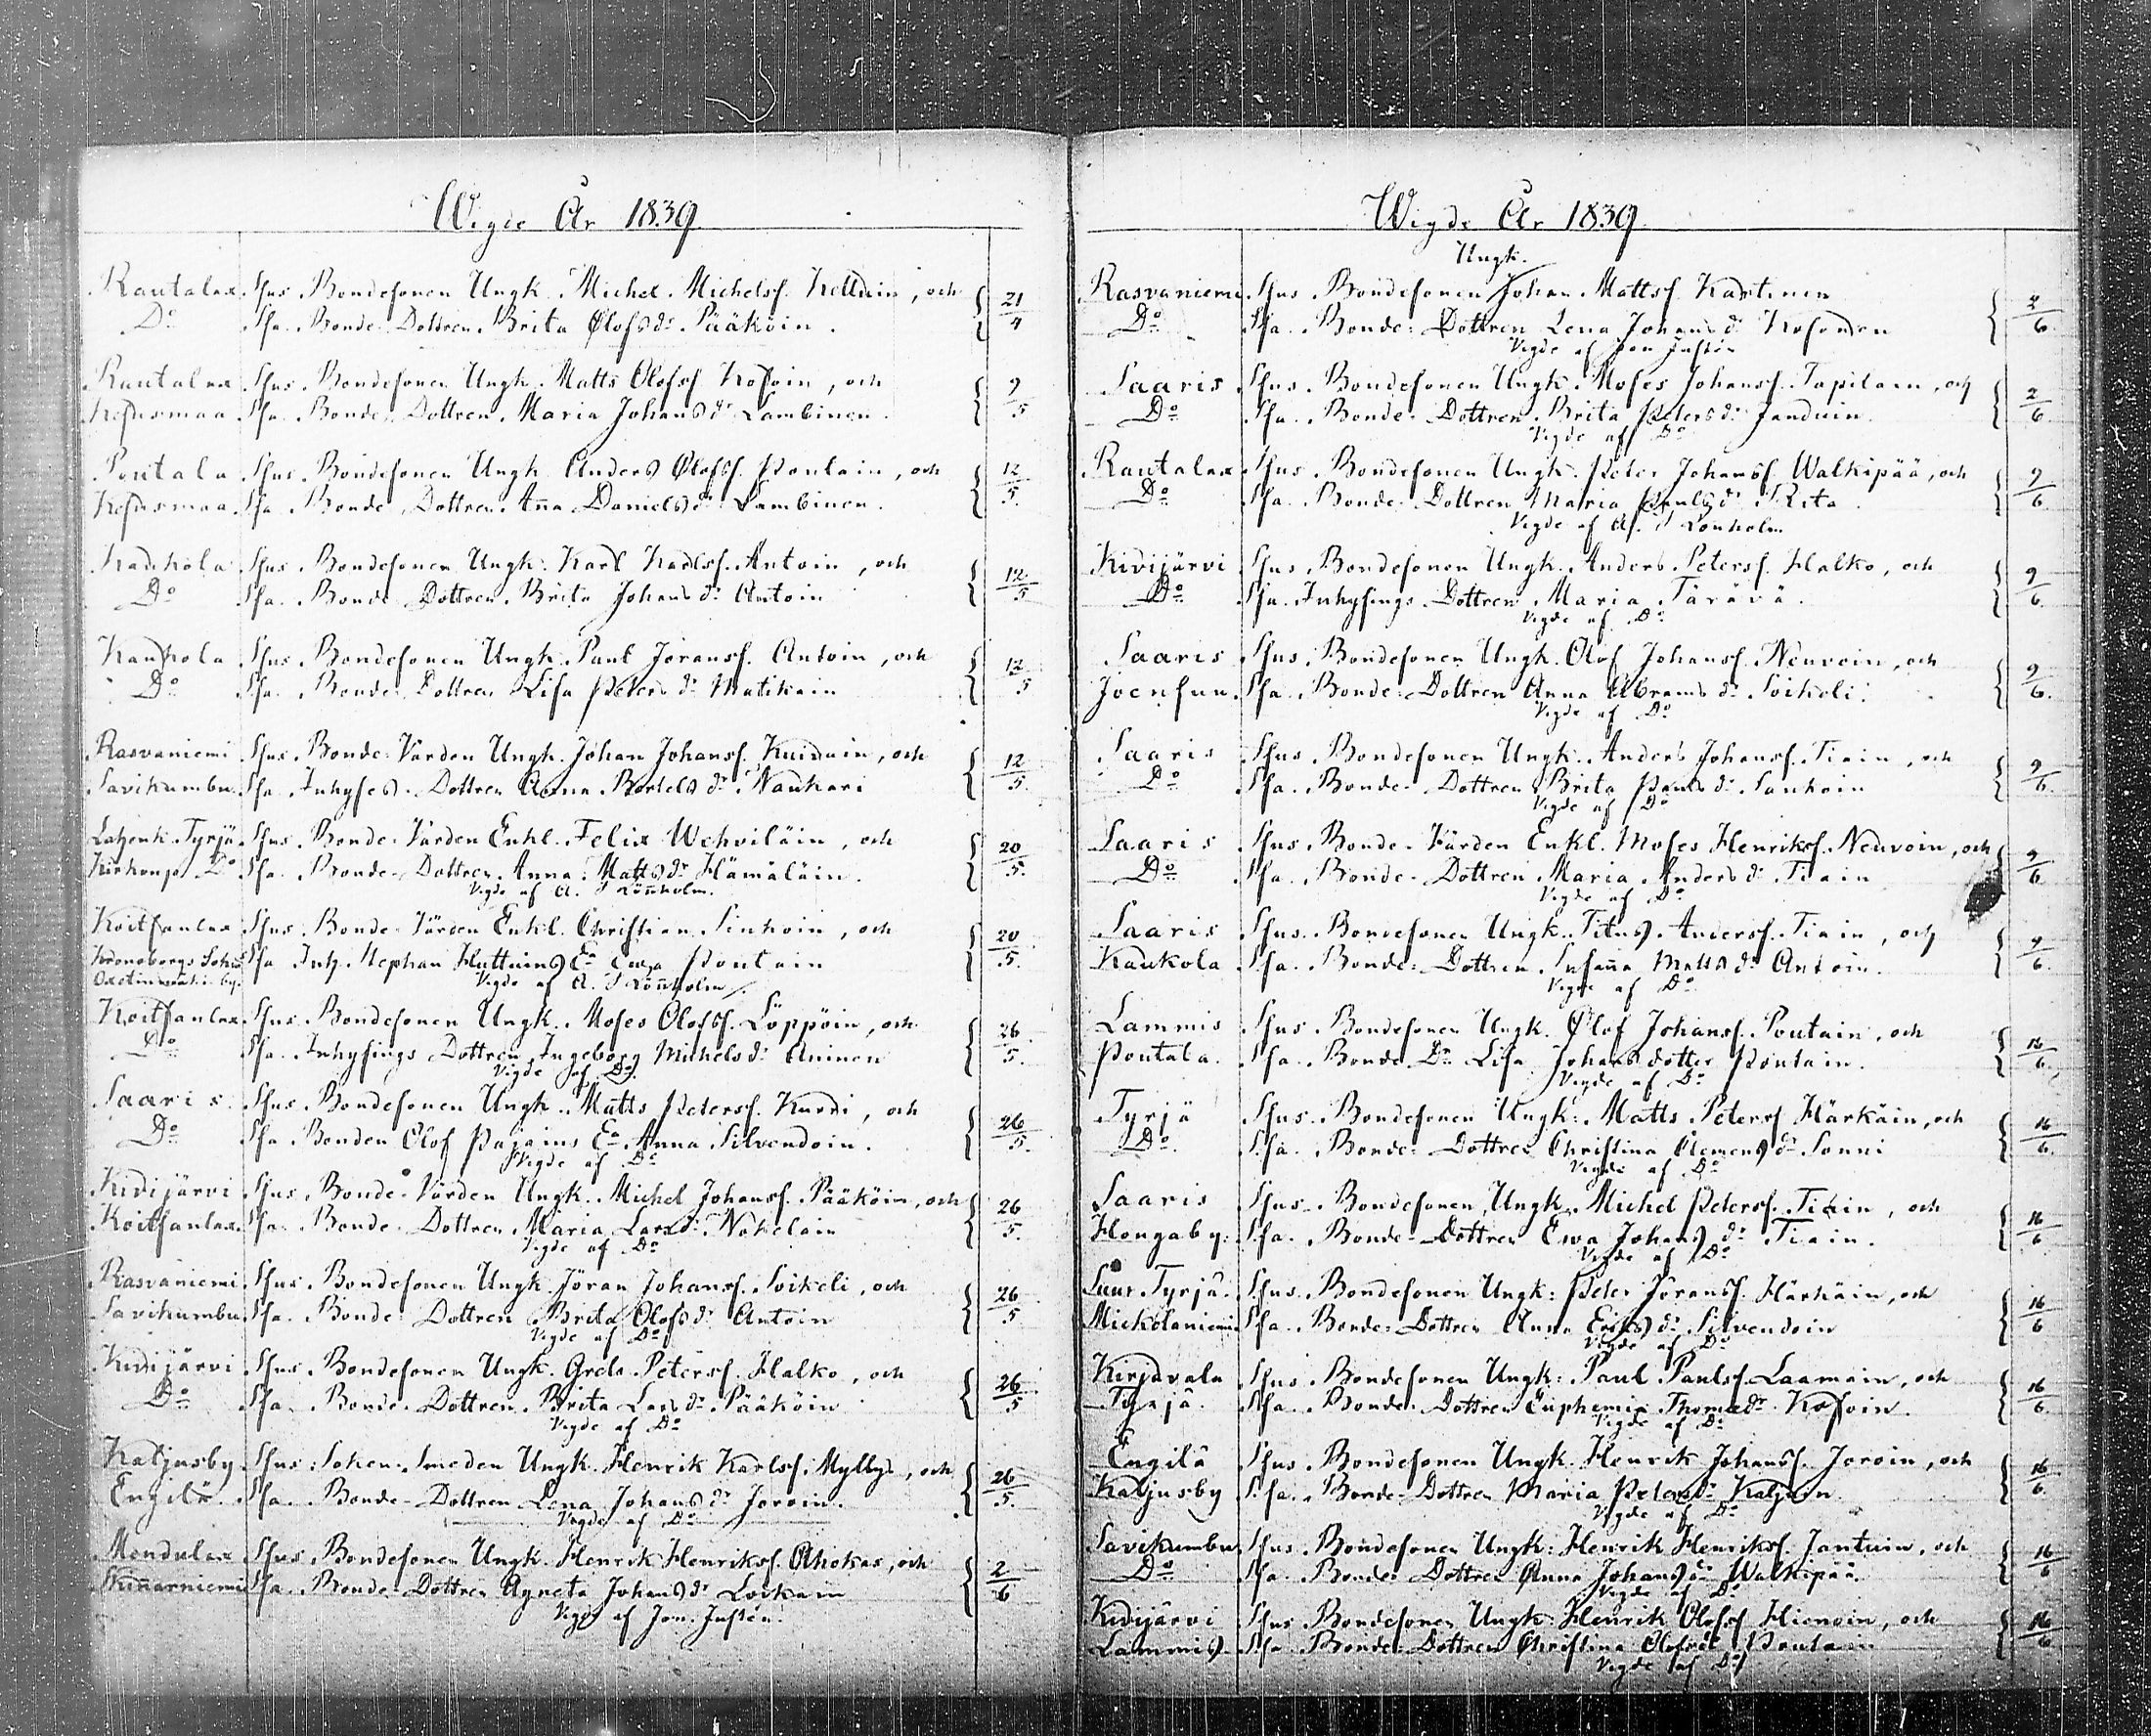 Wigde År 1839
Rautalax Sfus. Bondesonen Ungk. Michel Michelsf. , och 21/4
Do Sfa. Bonde-Dottren Brita Olofsdr Pääköin.
Rautalax Sfus. Bondesonen Ungk. Matts Olofsf. Kofoin, och 9/5
Kesusmaa Sfa. Bonde-Dottren Maria Johansdr Lambinen.
Poutala Sfus. Bondesonen Ungk. Anders Olofsf. Poutain, och 12/5
Kesusmaa Sfa. Bonde Dottren Anna Danielsdr Lambinen.
Kaukola Sfus. Bondesonen Ungk. Karl Karlsf. Antoin, och 12/5
Do Sfa. Bonde Dottren Brita Johansdr Antoin
Kaukola Sfus. Bondesonen Ungk. Paul Joransf. Antoin, och 12/5
Do Sfa. Bonde-Dottren Lisa Petersdr Matikain
Rasvaniemi Sfus. Bonde-Vården Ungk. Johan Johansf. Kuiduin, och 12/5
Savikumbu Sfa. Inhyses-Dottren Anna Bertelsdr Naukari
Tyrjä Sfus. Bonde-Vården Enkl. Felix Wehviläin, och 20/5
Do Sfa. Bonde-Dottren Anna Mattsdr Hämäläin.
Vigde af A. J Lönnholm.
Koitsanlax Sfus. Bonde-Vården Enkl. Christian Sinkoin, och 20/5
Kronoborgs Sokn Sfa Inh. Stephan Huttuins Ea Ewa Poutain
Vigde af A. J Lönnholm
Koitsanlax Sfus. Bondesonen Ungk. Moses Olofsf. Löppöin, och 26/5
Do Sfa. Inhysings Dottren Ingeborg Michelsdr Aninen
Vigde af Do
Saaris Sfus. Bondesonen Ungk. Matts Petersf. Kurri, och 26/5
Do Sfa Bonden Olof Pajains Ea Anna Silvendoin.
Vigde af Do
Kivijärvi Sfus. Bonde-Vården Ungk. Michel Johansf. Pääköin, och 26/5
Koitsanlax Sfa. Bonde-Dottren Maria Larsdr Nokelain
Vigde af Do
Rasvaniemi Sfus. Bondesonen Ungk. Jöran Johansf. Soikeli, och 26/5
Savikumbu Sfa. Bonde-Dottren Brita Olofsdr Antoin
Vigde af Do
Kivijärvi Sfus. Bondesonen Ungk. Grels Petersf. Halko, och 26/5
Do Sfa. Bonde-Dottren Brita Larsdr Pääköin
Vigde af Do
Kaljusby Sfus. Soken-Smeden Ungk. Henrik Karlsf. Myllys, och 26/5
Engilä Sfa. Bonde-Dottren Lena Johansdr Joroin.
Vigde af Do
Mendulax Sfus. Bondesonen Ungk. Henrik Henriksf. Ahokas, och 2/6
Kinarniemi Sfa. Bonde-Dottren Agneta Johansdr Loikain
Vigde af Jon. Juslén.
Wigde År 1839
Ungk.
Rasvaniemi Sfus. Bondesonen Johan Mattsf. Kastinen 2/6
Do Sfa. Bonde-Dottren Lena Johansdr Kosonen
Vigde af Jon Juslén
Saaris Sfus. Bondesonen Ungk. Moses Johansf. Tapilain, och 2/6
Do Sfa. Bonde-Dottren Brita Petersdr Janduin.
Vigde af Do
Rautalax Sfus. Bondesonen Ungk. Peter Johansf. Walkipää, och 9/6
Do Sfa. Bonde-Dottren Maria Paulsdr Rita
Vigde af A. J Lönholm
Kivijärvi Sfus. Bondesonen Ungk. Anders Petersf. Halko, och 9/6
Do Sfa. Inhysings Dottren Maria Tärävä.
Vigde af Do
Saaris Sfus. Bondesonen Ungk. Olof Johansf. Neuvoin, och 9/6
Joensuu Sfa. Bonde-Dottren Anna Abramsdr Soikeli.
Vigde af Do
Saaris Sfus. Bondesonen Ungk. Anders Johansf. Tiain, och 9/6
Do Sfa. Bonde-Dottren Brita Paulsdr Saukoin
Vigde af Do
Saaris Sfus. Bonde-Vården Enkl. Moses Henriksf. Neuvoin, och 9/6
Do Sfa. Bonde-Dottren Maria Andersdr Tiain
Vigde af Do
Saaris Sfus. Bondesonen Ungk. Titus Andersf. Tiain, och 9/6
Kaukola Sfa. Bonde-Dottren Susanna Mattsdr Antoin.
Vigde af Do
Lammis Sfus. Bondesonen Ungk. Olof Johansf. Poutain, och 16/6
Poutala. Sfa. Bonde Dr Lisa Johansdotter Poutain.
Vigde af Do
Tyrjä Sfus. Bondesonen Ungk. Matts Petersf. Härkäin, och 16/6
Do Sfa. Bonde-Dottren Christina Clemensdr Sonni
Vigde af Do
Saaris Sfus. Bondesonen Ungk. Michel Petersf. Tiain, och 16/6
Hongaby. Sfa. Bonde-Dottren Ewa Johansdr Tiain.
Vigde af Do
Suur Tyrjä. Sfus. Bondesonen Ungk: Peter Joransf. Härkäin, och 16/6
Mickolaniemi Sfa. Bonde-Dottren Anna Ericsdr Silvendoin
Vigde af Do
Kirjavala Sfus. Bondesonen Ungk: Paul Paulsf. Laamain, och 16/6
Tyrjä. Sfa. Bonde-Dottren Euphemia Thomædr Kofoin.
Vigde af Do
Engilä Sfus. Bondesonen Ungk. Henrik Johansf. Joroin, och 16/6
Kaljusby Sfa. Bonde-Dottren Maria Petersdr Kaljuin
Vigde af Do
Savikumbu Sfus. Bondesonen Ungk: Henrik Henriksf. Jantuin, och 16/6
Do Sfa. Bonde-Dottren Anna Johansdr Walkipää.
Vigde af Do
Kivijärvi Sfus. Bondesonen Ungk: Henrik Olofsf. Hienoin, och 16/6
Lammis. Sfa. Bonde-Dottren Christina Olofsdr Poutain
Vigde af Do